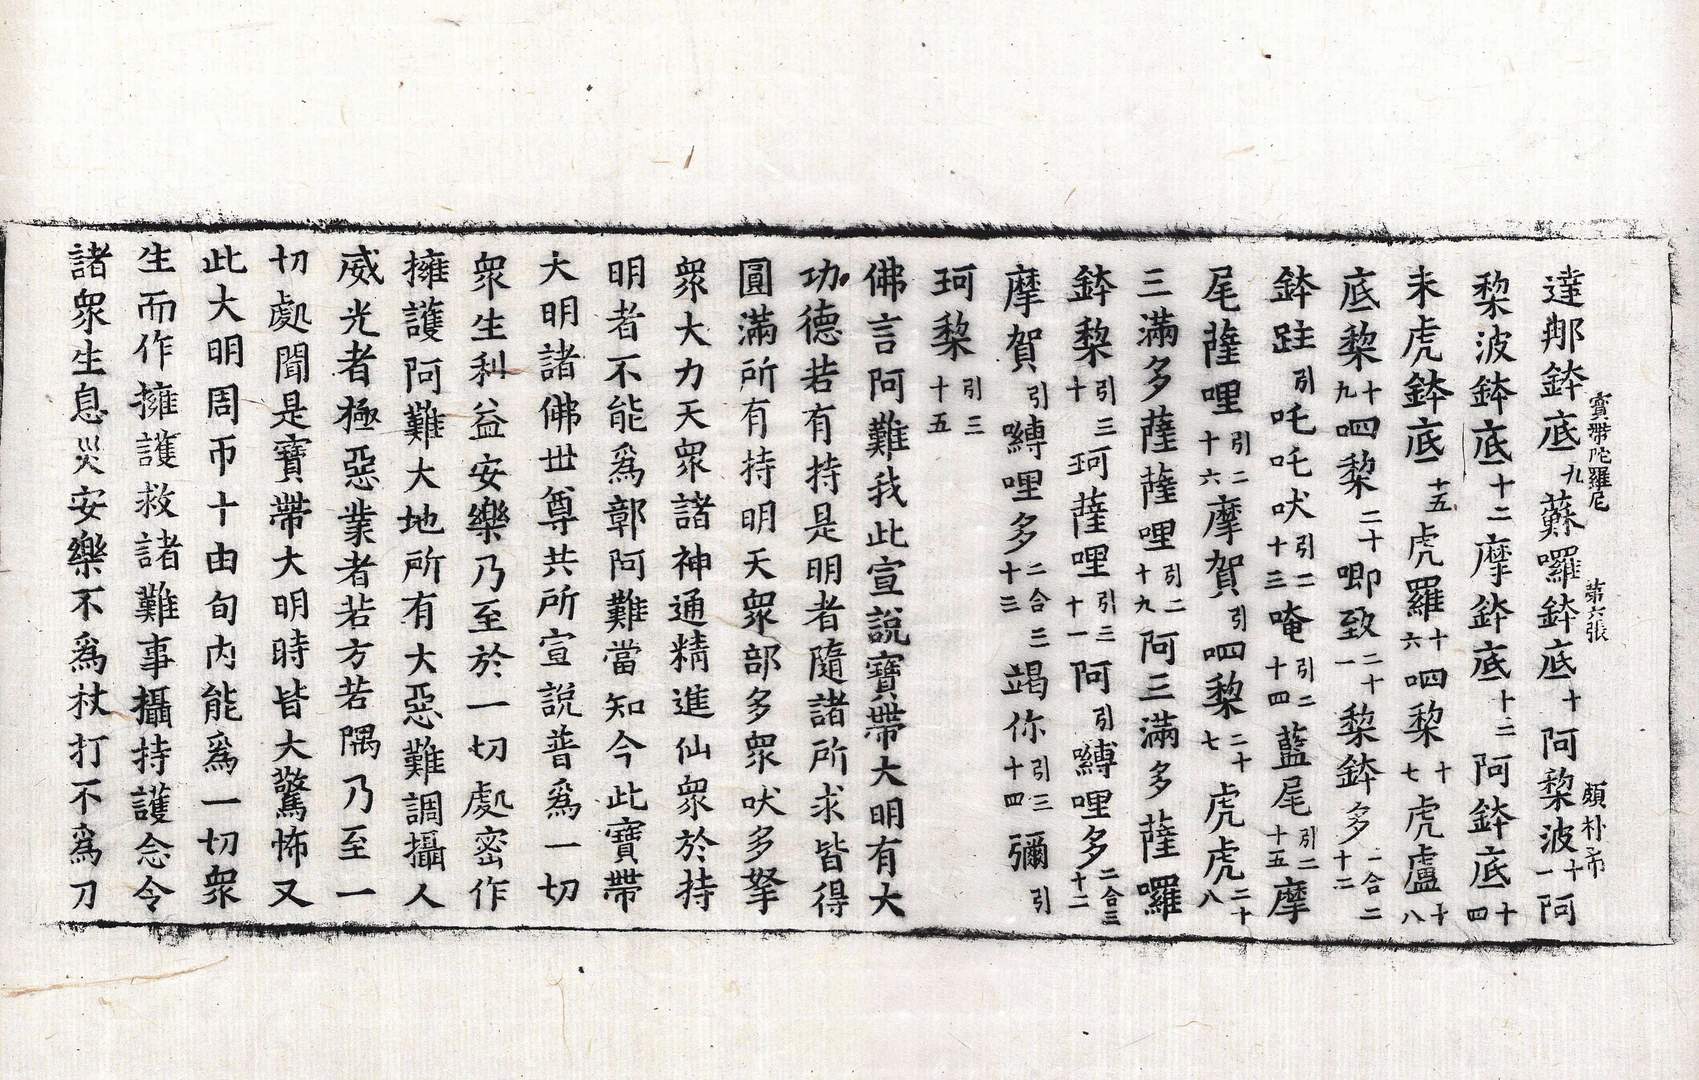 寶帶陀羅尼　第六張　頗　朴希
達那鉢底九蘇囉鉢底十阿犂波十一阿
犂波鉢底十二摩鉢底十三阿鉢底十四
未虎鉢底十五虎羅十六呬犂十七虎盧十八
底犂十九呬犂二十唧致二十一犂鉢多二合二十二
鉢跓引吒吒吠引二十三唵引二十四藍尾引二十五摩
尾薩哩引二十六摩賀引呬犂二十七虎虎二十八
三滿多薩薩哩引二十九阿三滿多薩囉
鉢犂引三十珂薩哩引三十一阿引嚩哩多二合三十二
摩賀引嚩哩多二合三十三竭你引三十四彌引
珂犂引三十五
佛言阿難我此宣說寶帶大明有大
功德若有持是明者隨諸所求皆得
圓滿所有持明天衆部多衆吠多拏
衆大力天衆諸神通精進仙衆於持
明者不能爲鄣阿難當知今此寶帶
大明諸佛世尊共所宣說普爲一切
衆生利益安樂乃至於一切處密作
擁護阿難大地所有大惡難調攝人
威光者極惡業者若方若隅乃至一
切處聞是寶帶大明時皆大驚怖又
此大明周帀十由旬內能爲一切衆
生而作擁護救諸難事攝持護念令
諸衆生息災安樂不爲杖打不爲刀